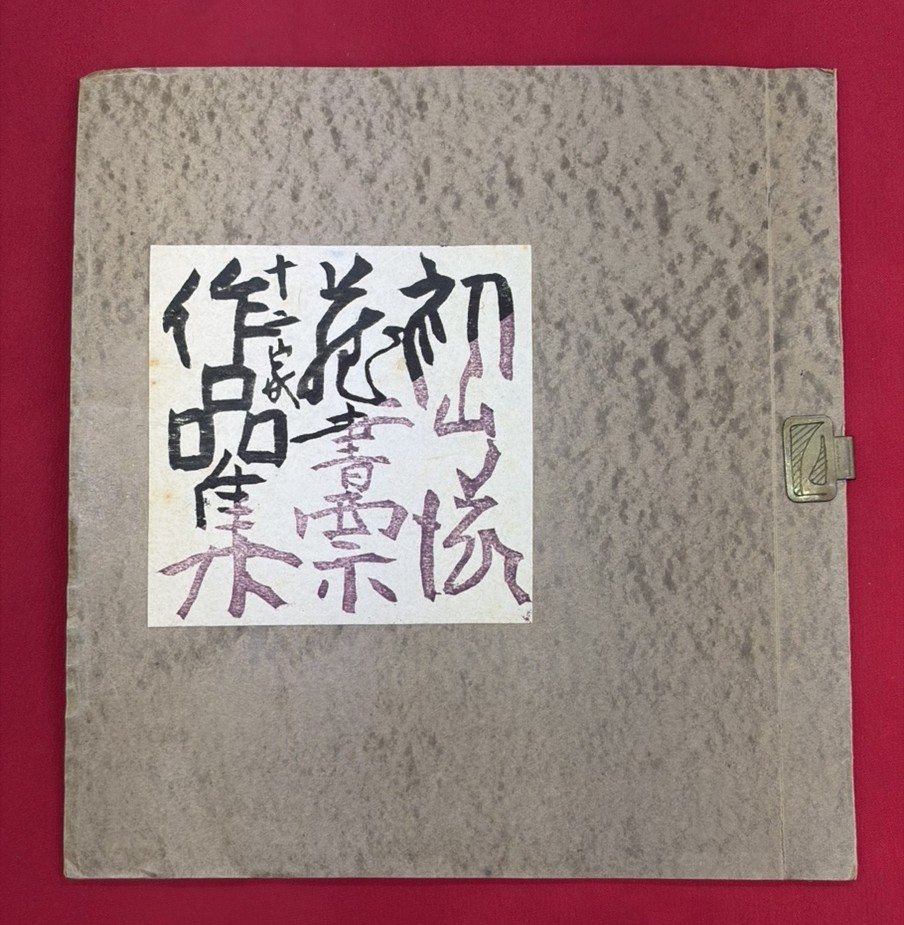 初山滋
蔵書票
十二家
作品集